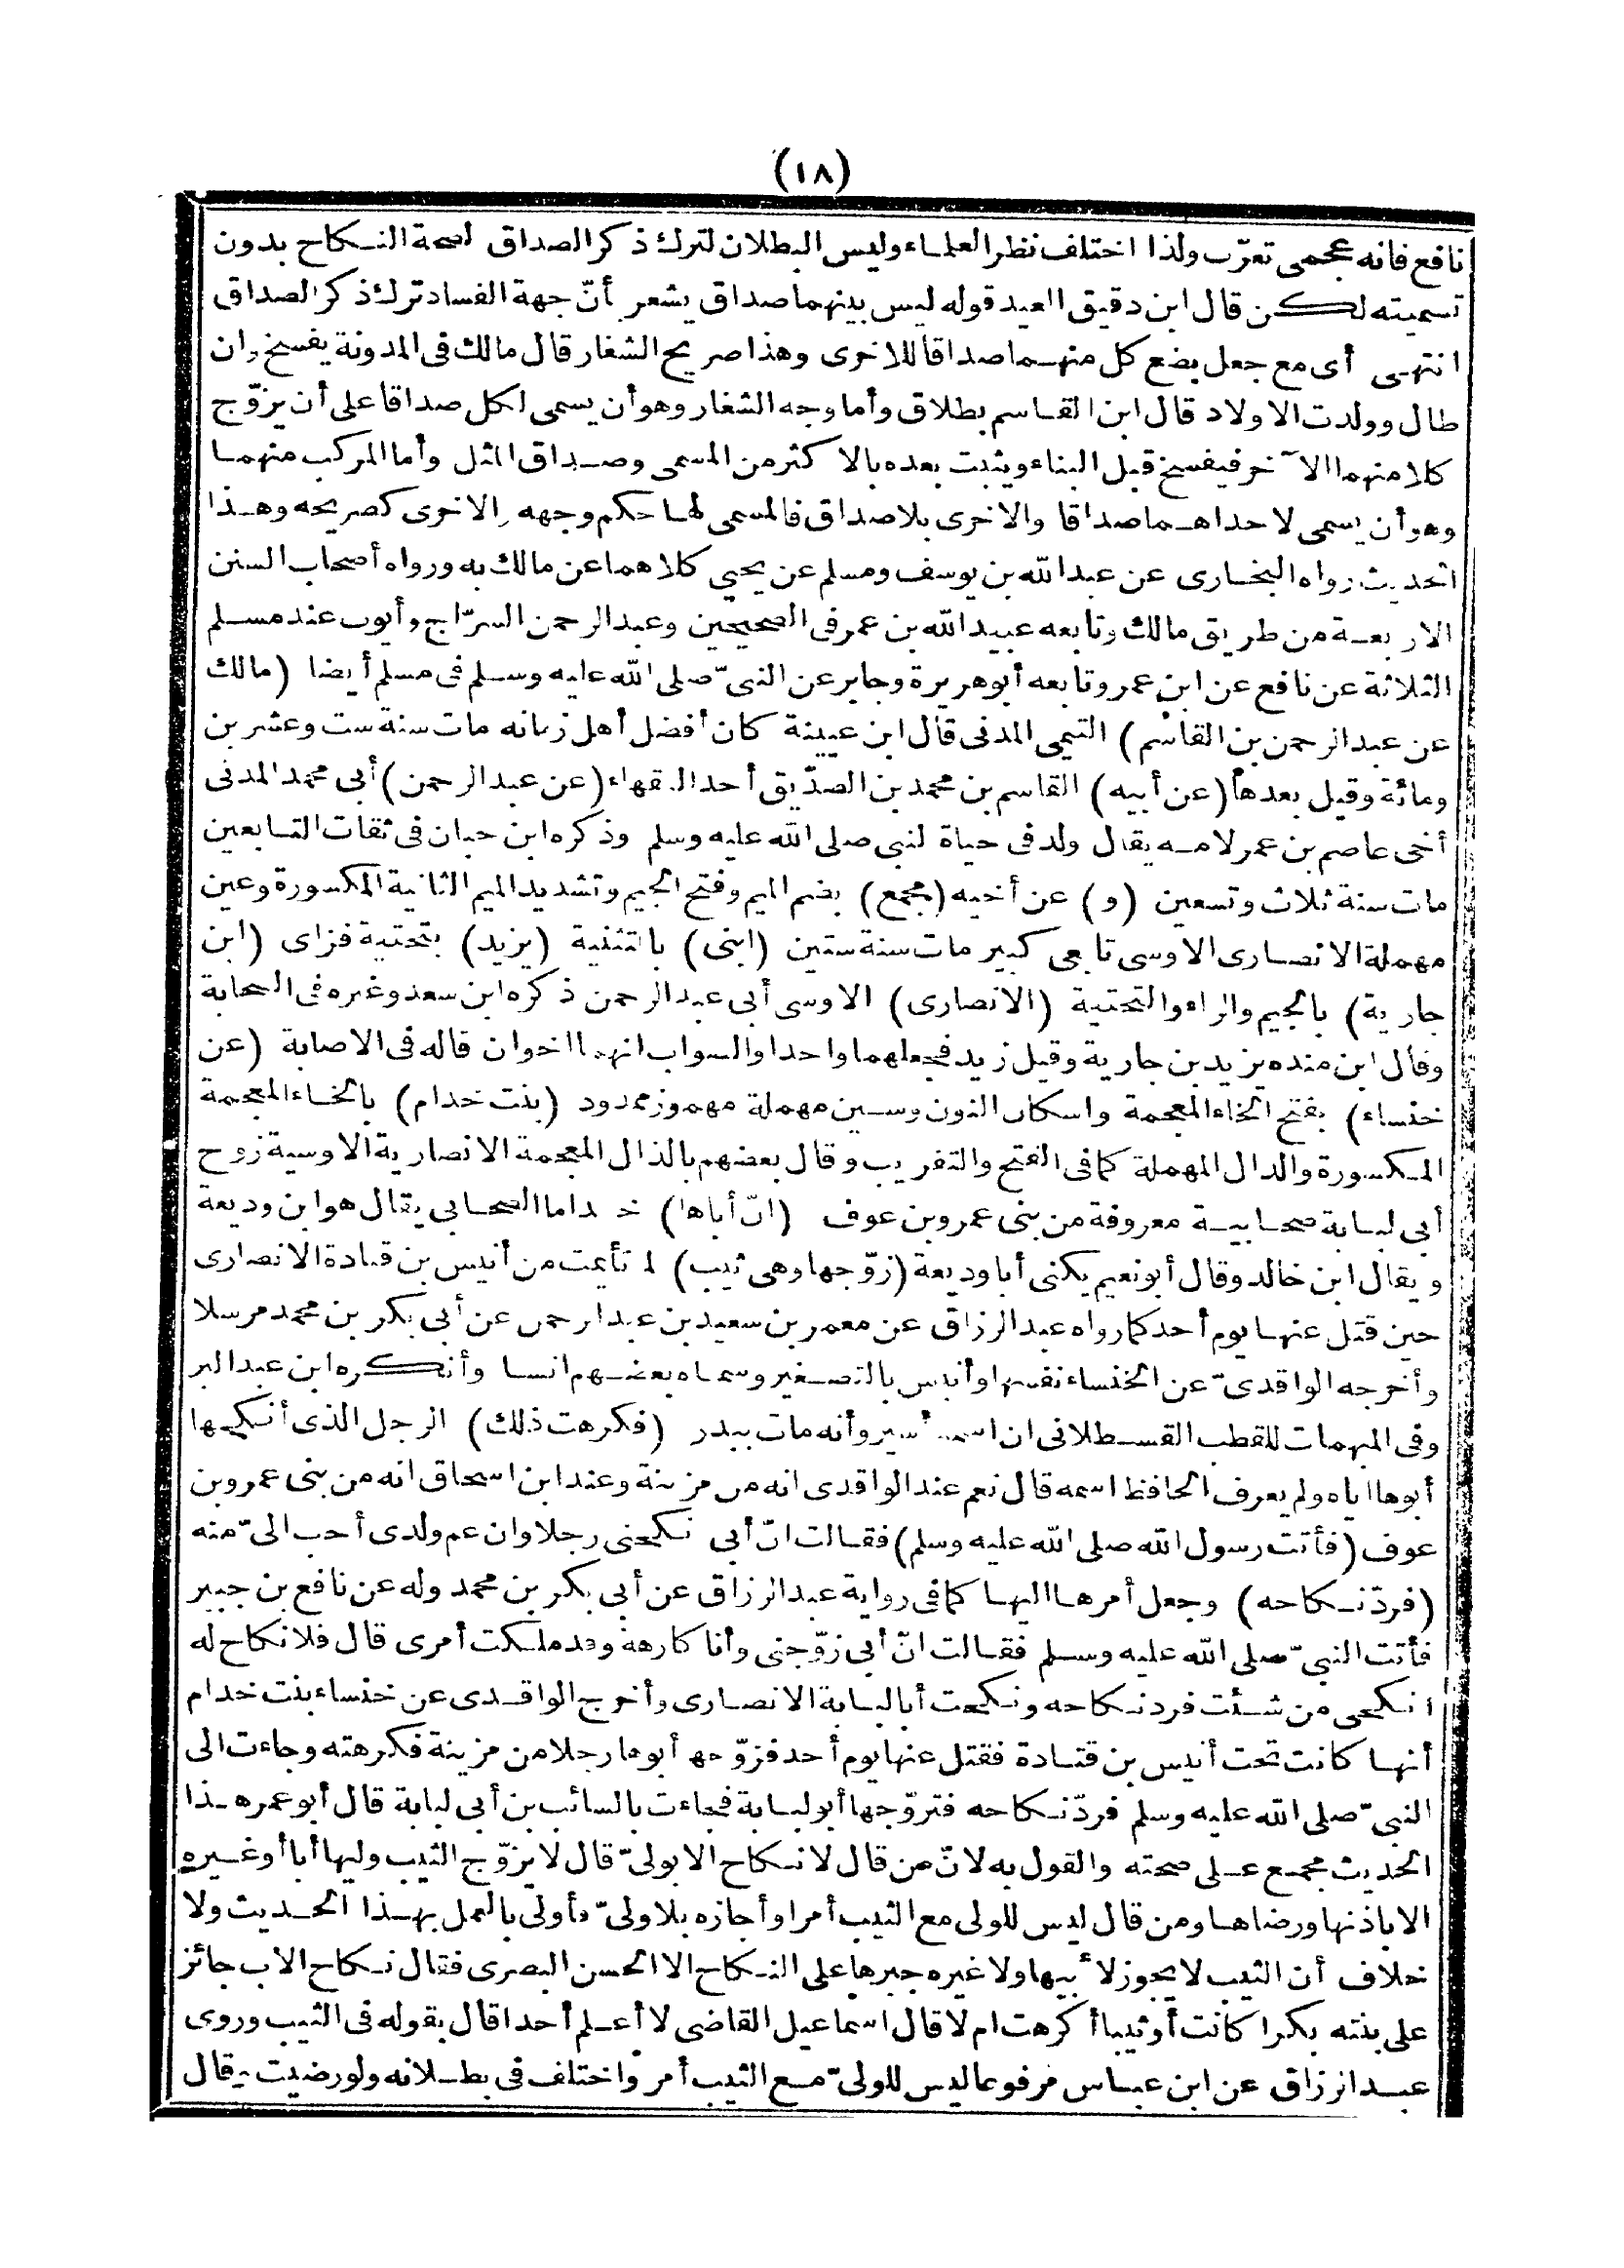 (١٨)
نافع فانه عجمى تعرّب ولذا اختلف نظر العلماء وليس البطلان لترك ذكر الصداق لصحة النكاح بدون
تسميته لكن قال ابن دقيق العيد قوله ليس بينهما صداق يشعر أنّ جهة الفساد ترك ذكر الصداق
انتهى أى مع جعل بضع كل منهما صداقا للاخرى وهذا صريح الشغار قال مالك فى المدونة يفسخ وان
طال وولدت الاولاد قال ابن القاسم بطلاق وأما وجه الشغار وهو أن يسمى لكل صداقا على أن يزوّج
كلا منهما الآخر فيفسخ قبل البناء ويثبت بعده بالاكثر من المسمى وصداق المثل وأما المركب منهما
وهو أن يسمى لاحداهما صداقا والاخرى بلا صداق فالمسمى لها حكم وجهه والاخرى كصريحه وهذا
الحديث رواه البخارى عن عبد الله بن يوسف ومسلم عن يحيى كلاهما عن مالك به ورواه أصحاب السنن
الاربعة من طريق مالك وتابعه عبيد الله بن عمر فى الصحيحين وعبد الرحمن السرّاج وأيوب عند مسلم
الثلاثة عن نافع عن ابن عمر وتابعه أبو هريرة وجابر عن النبىّ صلى الله عليه وسلم فى مسلم أيضا (مالك
عن عبد الرحمن بن القاسم) التيمى المدنى قال ابن عيينة كان أفضل أهل زمانه مات سنة ست وعشرين
ومائة وقيل بعدها (عن أبيه) القاسم بن محمد بن الصدّيق أحد الفقهاء (عن عبد الرحمن) أبى محمد المدنى
أخى عاصم بن عمر لامه يقال ولد فى حياة النبى صلى الله عليه وسلم وذكره ابن حبان فى ثقات التابعين
مات سنة ثلاث وتسعين (و) عن أخيه (مجمع) بضم الميم وفتح الجيم وتشديد الميم الثانية المكسورة وعين
مهملة الانصارى الاوسى تابعى كبير مات سنة ستين (ابنى) بالتثنية (يزيد) بتحتية فزاى (ابن
جارية) بالجيم والراء والتحتية (الانصارى) الاوسى أبى عبد الرحمن ذكره ابن سعد وغيره فى الصحابة
وقال ابن منده يزيد بن جارية وقيل زيد فجعلهما واحدا والصواب انهما اخوان قاله فى الاصابة (عن
خنساء) بفتح الخاء المعجمة واسكان النون وسين مهملة مهموز ممدود (بنت خدام) بالخاء المعجمة
المكسورة والدال المهملة كما فى الفتح والتقريب وقال بعضهم بالذال المعجمة الانصارية الاوسية زوج
أبى لبابة صحابية معروفة من بنى عمرو بن عوف (انّ أباها) خداما الصحابى يقال هو ابن وديعة
ويقال ابن خالد وقال أبو نعيم يكنى أبا وديعة (زوّجها وهى ثيب) لما تأيمت من أنيس بن قتادة الانصارى
حين قتل عنها يوم أحد كما رواه عبد الرزاق عن معمر بن سعيد بن عبد الرحمن عن أبى بكر بن محمد مرسلا
وأخرجه الواقدىّ عن الخنساء نفسها وأنيس بالتصغير وسماه بعضهم انسا وأنكره ابن عبد البر
وفى المبهمات للقطب القسطلانى ان اسمه أسير وأنه مات ببدر (فكرهت ذلك) الرجل الذى أنكحها
أبوها اياه ولم يعرف الحافظ اسمه قال نعم عند الواقدى انه من مزينة وعند ابن اسحاق انه من بنى عمرو بن
عوف (فأتت رسول الله صلى الله عليه وسلم) فقالت انّ أبى نكحنى رجلا وان عم ولدى أحب الىّ منه
(فردّ نكاحه) وجعل أمرها اليها كما فى رواية عبد الرزاق عن أبى بكر بن محمد وله عن نافع بن جبير
فأتت النبىّ صلى الله عليه وسلم فقالت انّ أبى زوّجنى وأنا كارهة وقد ملكت أمرى قال فلا نكاح له
انكحى من شئت فرد نكاحه ونكحت أبا لبابة الانصارى وأخرج الواقدى عن خنساء بنت خدام
أنها كانت تحت أنيس بن قتادة فقتل عنها يوم أحد فزوّجها أبوها رجلا من مزينة فكرهته وجاءت الى
النبىّ صلى الله عليه وسلم فردّ نكاحه فتزوّجها أبو لبابة فجاءت بالسائب بن أبى لبابة قال أبو عمر هذا
الحديث مجمع على صحته والقول به لانّ من قال لا نكاح الا بولىّ قال لا يزوّج الثيب وليها أبا أو غيره
الا باذنها ورضاها ومن قال ليس للولى مع الثيب أمر وأجازه بلا ولىّ فأولى بالعمل بهذا الحديث ولا
خلاف أن الثيب لا يجوز لأبيها ولا غيره جبرها على النكاح الا الحسن البصرى فقال نكاح الاب جائز
على بنته بكرا كانت أو ثيبا أكرهت ام لا قال اسماعيل القاضى لا أعلم أحدا قال بقوله فى الثيب وروى
عبد الرزاق عن ابن عباس مرفوعا ليس للولىّ مع الثيب أمر واختلف فى بطلانه ولو رضيت فقال